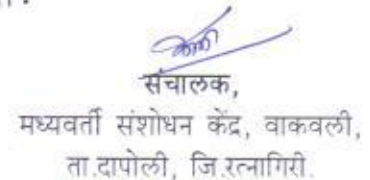 संचालक,
मध्यवर्ती संशोधन केंद्र, वाकवली,
ता.दापोली, जि.रत्नागिरी.